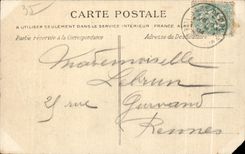 35
CARTE POSTALE
A UTILISER SEULEMENT DANS LE SERVICE INTÉRIEUR FRANCE
Partie réservée à la Correspondance
Adresse du Destinataire
Mademoiselle
Lebrun
25 rue Gurvand
Rennes